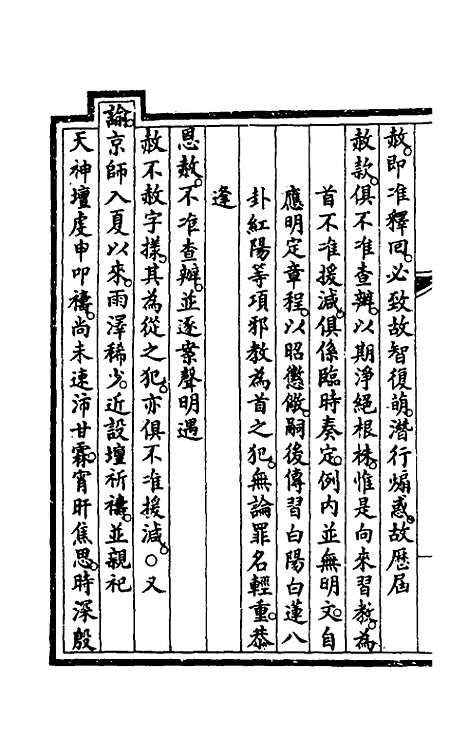 赦。即准釋回。必致故智復萌。潛行煽惑。故歷屆
赦款。俱不准查辦。以期淨絕根株。惟是向來習教。為
首不准援減。俱係臨時奏定。例內並無明文。自
應明定章程。以昭懲儆。嗣後傳習白陽白蓮八
卦紅陽等項邪教為首之犯。無論罪名輕重。恭
逢
恩赦。不准查辦。並逐案聲明遇
赦不赦字樣。其為從之犯。亦俱不准援減。○又
諭。京師入夏以來。雨澤稀少。近設壇祈禱。並親祀
天神壇虔申叩禱。尚未速沛甘霖。宵旰焦思。時深殷